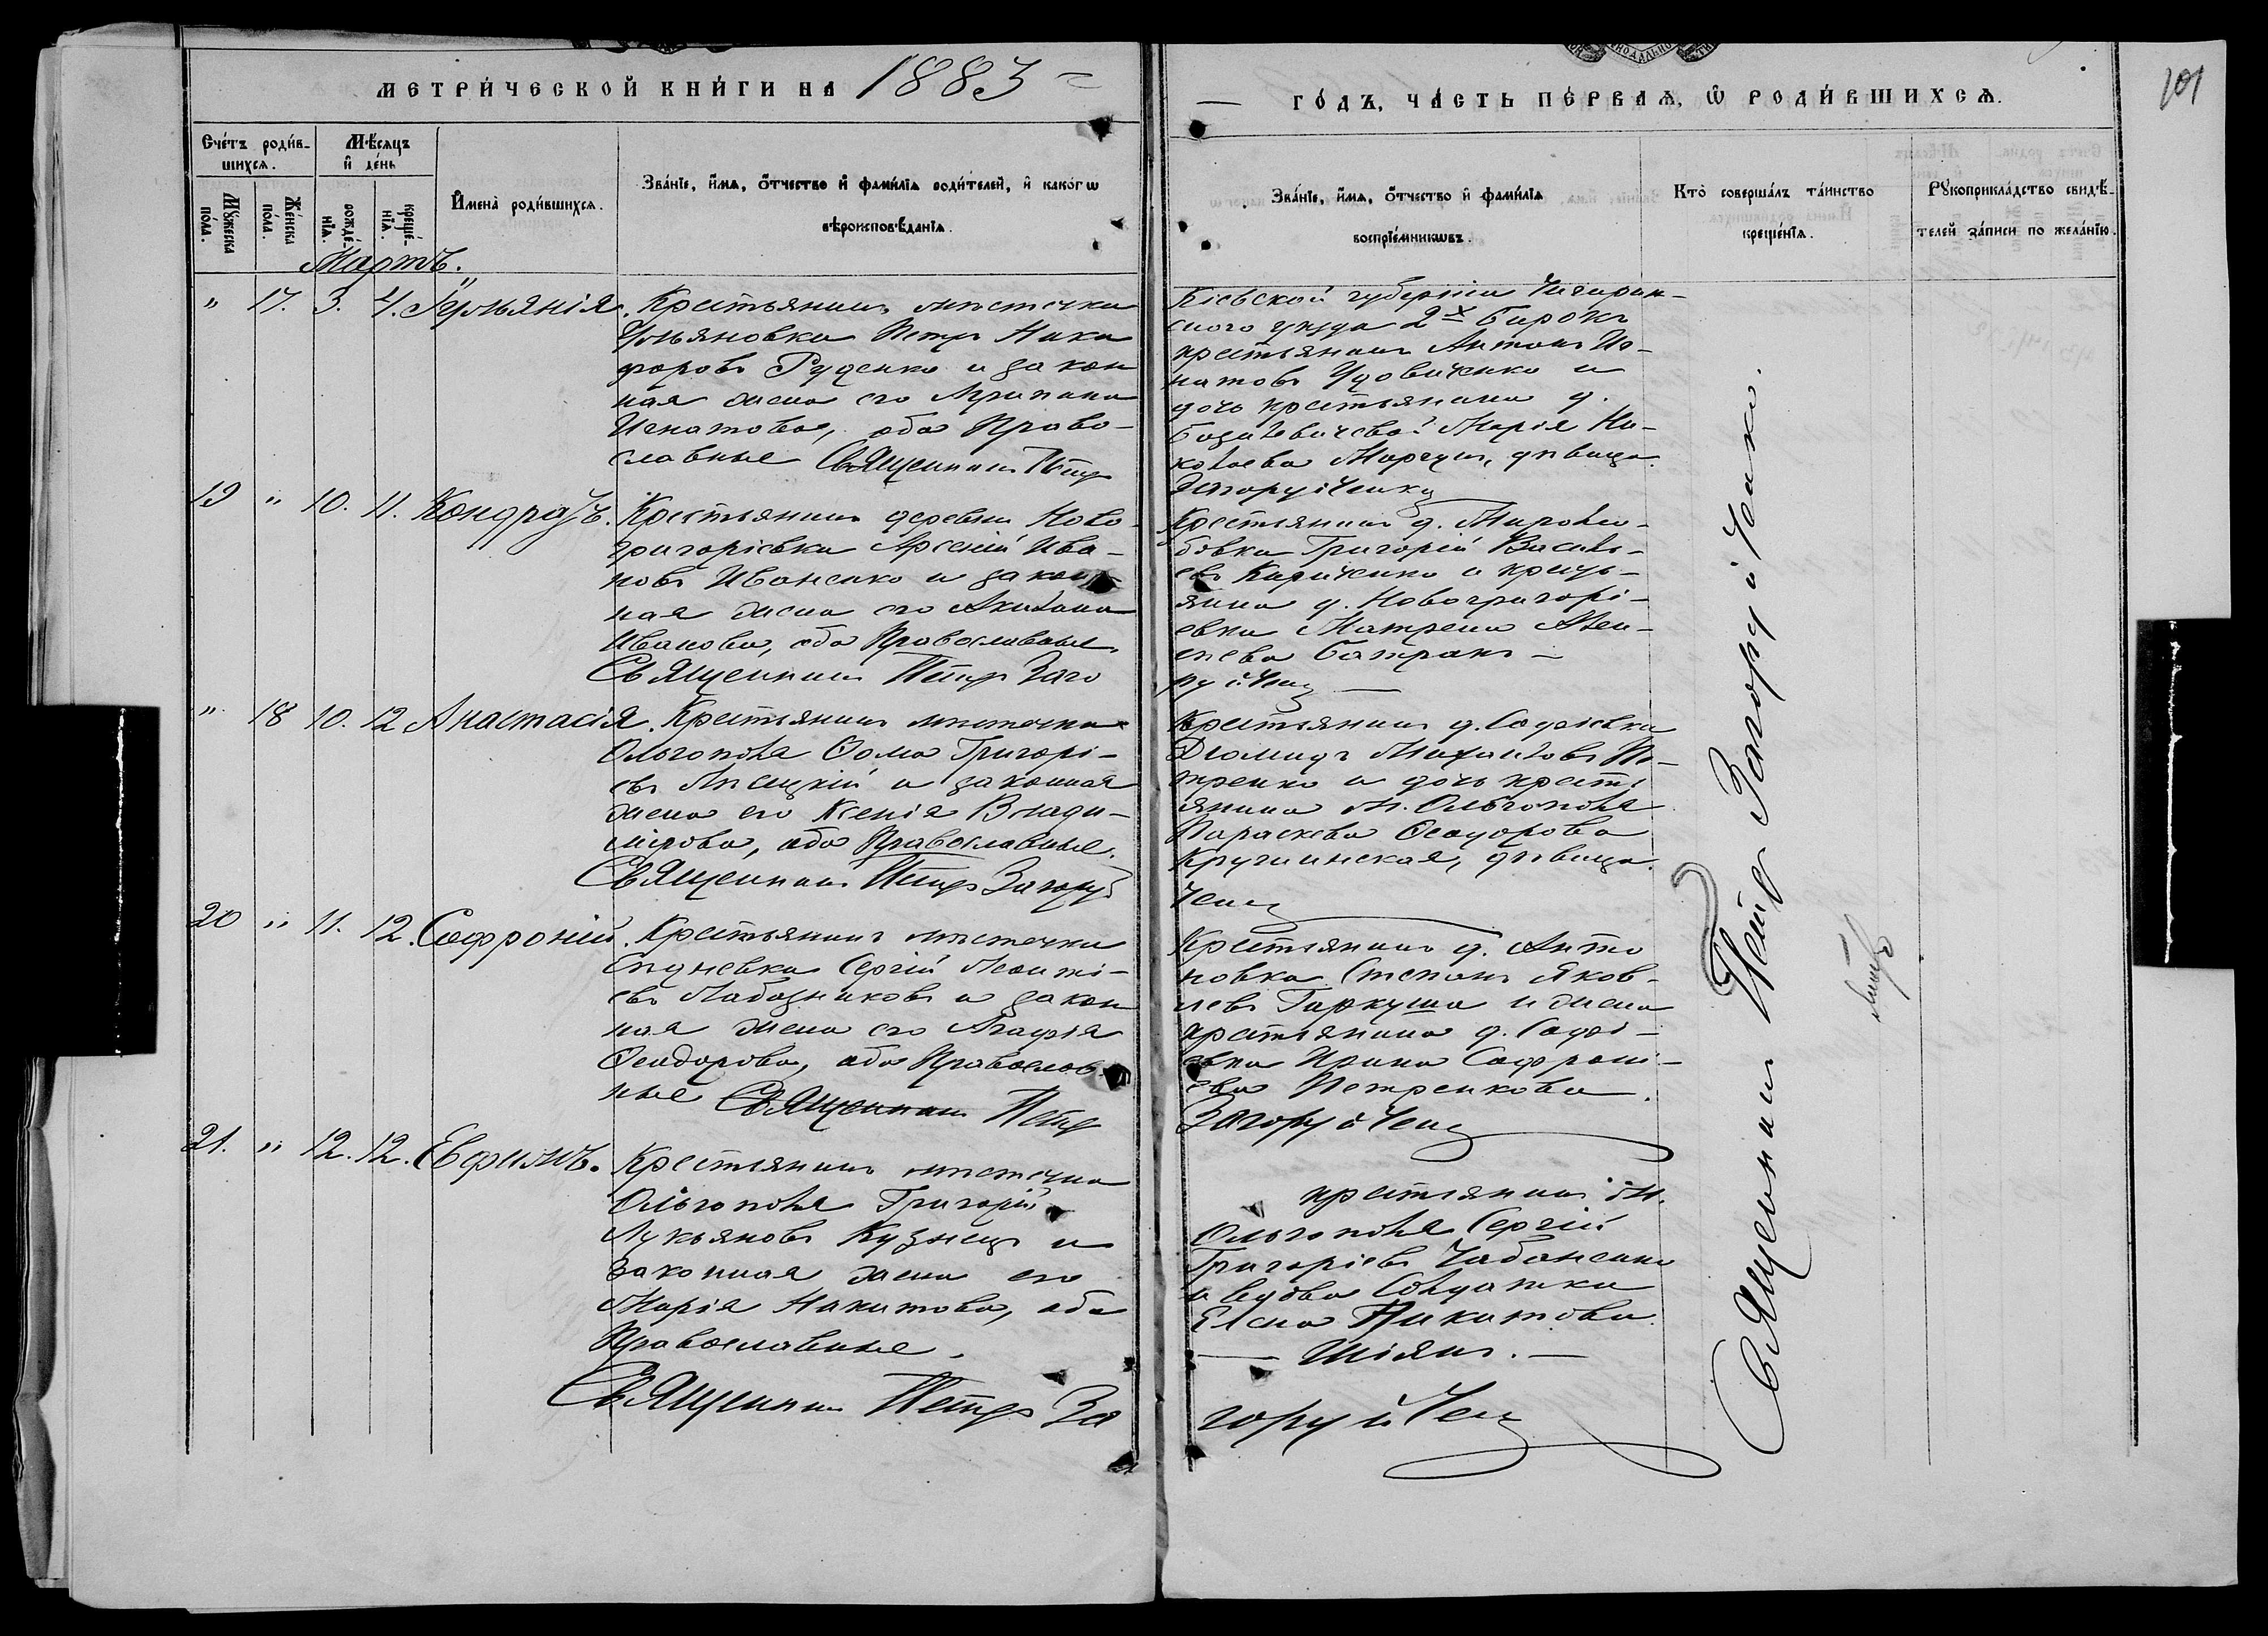 МЕТРИ́ЧЕСКОЙ КНИ́ГИ НА 1883
ГО́ДЪ, ЧА́СТЬ ПЕ́РВАѦ, Ѿ РОДИ́ВШИХСѦ.
101
Сче́тъ роди́в-
шихся.
Мѣ́сяцъ
и҆ де́нь
Му́жеска по́ла.
Же́нска по́ла.
рожде́-нїѧ.
креще́-нїѧ.
И҆мена̀ роди́вшихсѧ.
Зва́нїе, и҆́мѧ, ѻ҆́тчество и҆ фамі́лїѧ роди́телей, и҆ како́гѡ
вѣроисповѣ́данїѧ.
Зва́нїе, и҆́мѧ, ѻ҆́тчество и҆ фамі́лїѧ
воспрїе́мникѡвъ.
Кто̀ соверша́лъ та́инство
креще́нїѧ.
Рꙋкоприкла́дство свидѣ́-
телей за́писи по жела́нїю.
Мартъ.
" 17. 3. 4. Іульянія.
Крестьянинъ мѣстечка
Ульяновки Петръ Ники
форовъ Руденко и закон
ная жена его Агрипина
Игнатова, оба Право-
славные Священникъ Петръ
Кіевской губерніи Чигирин-
ского уѣзда
крестьянинъ Антонъ Иг-
натовъ Удовиченко и
дочь крестьянина д.
Марія Ни-
колаева дѣвица.
Загоруйченко
19 " 10. 11. Кондратъ.
Крестьянинъ деревни Ново-
григоріевки Арсеній Ива-
новъ Иваненко и закон-
ная жена его Акилина
Иванова, оба Православные.
Священникъ Петръ Заго
Крестьянинъ д. Миролю-
бовки Григорій Василь-
евъ Кириченко и крестьь-
янина д. Новогригорі-
евки Матрена
Батракъ —
руйченко
" 18 10. 12 Анастасія.
Крестьянинъ мѣстечка
Ольгополя Ѳома Григорі-
евъ Лисецкій и законная
жена его Ксенія Влади-
мірова, оба Православные.
Священникъ Петръ Загоруй
Крестьянинъ д. Софіевки
Діомидъ Михаиловъ Пе-
тренко и дочь кресть
янина м. Ольгополя
Параскева Ѳеодорова
Кручинская, дѣвица.
ченко
20 " 11. 12. Софроній.
Крестьянинъ мѣстечка
Сергій Леонті-
евъ Лабазниковъ и закон
ная жена его Агафія
Ѳеодорова, оба Православ
ные Священникъ Петръ
Крестьянинъ д. Анто
новки Степанъ Яков-
левъ Гаркуша и жена
крестьянина д. Софі-
евки Ирина Софроні-
ева Петренкова.
Загоруйченко
21. " 12. 12. Евфимъ.
Крестьянинъ мѣстечка
Ольгополя Григорій
Лукьяновъ Кузнецъ и
законная жена его
Марія Никитова, оба
Православные.
Священникъ Петръ За
крестьянинъ м.
Ольгополя Сергій
Григоріевъ Чабаненко
и вдова Солдатка
Елена Никитова
— Шіянъ. —
горуйченко
Священникъ Петръ Загоруйченко.